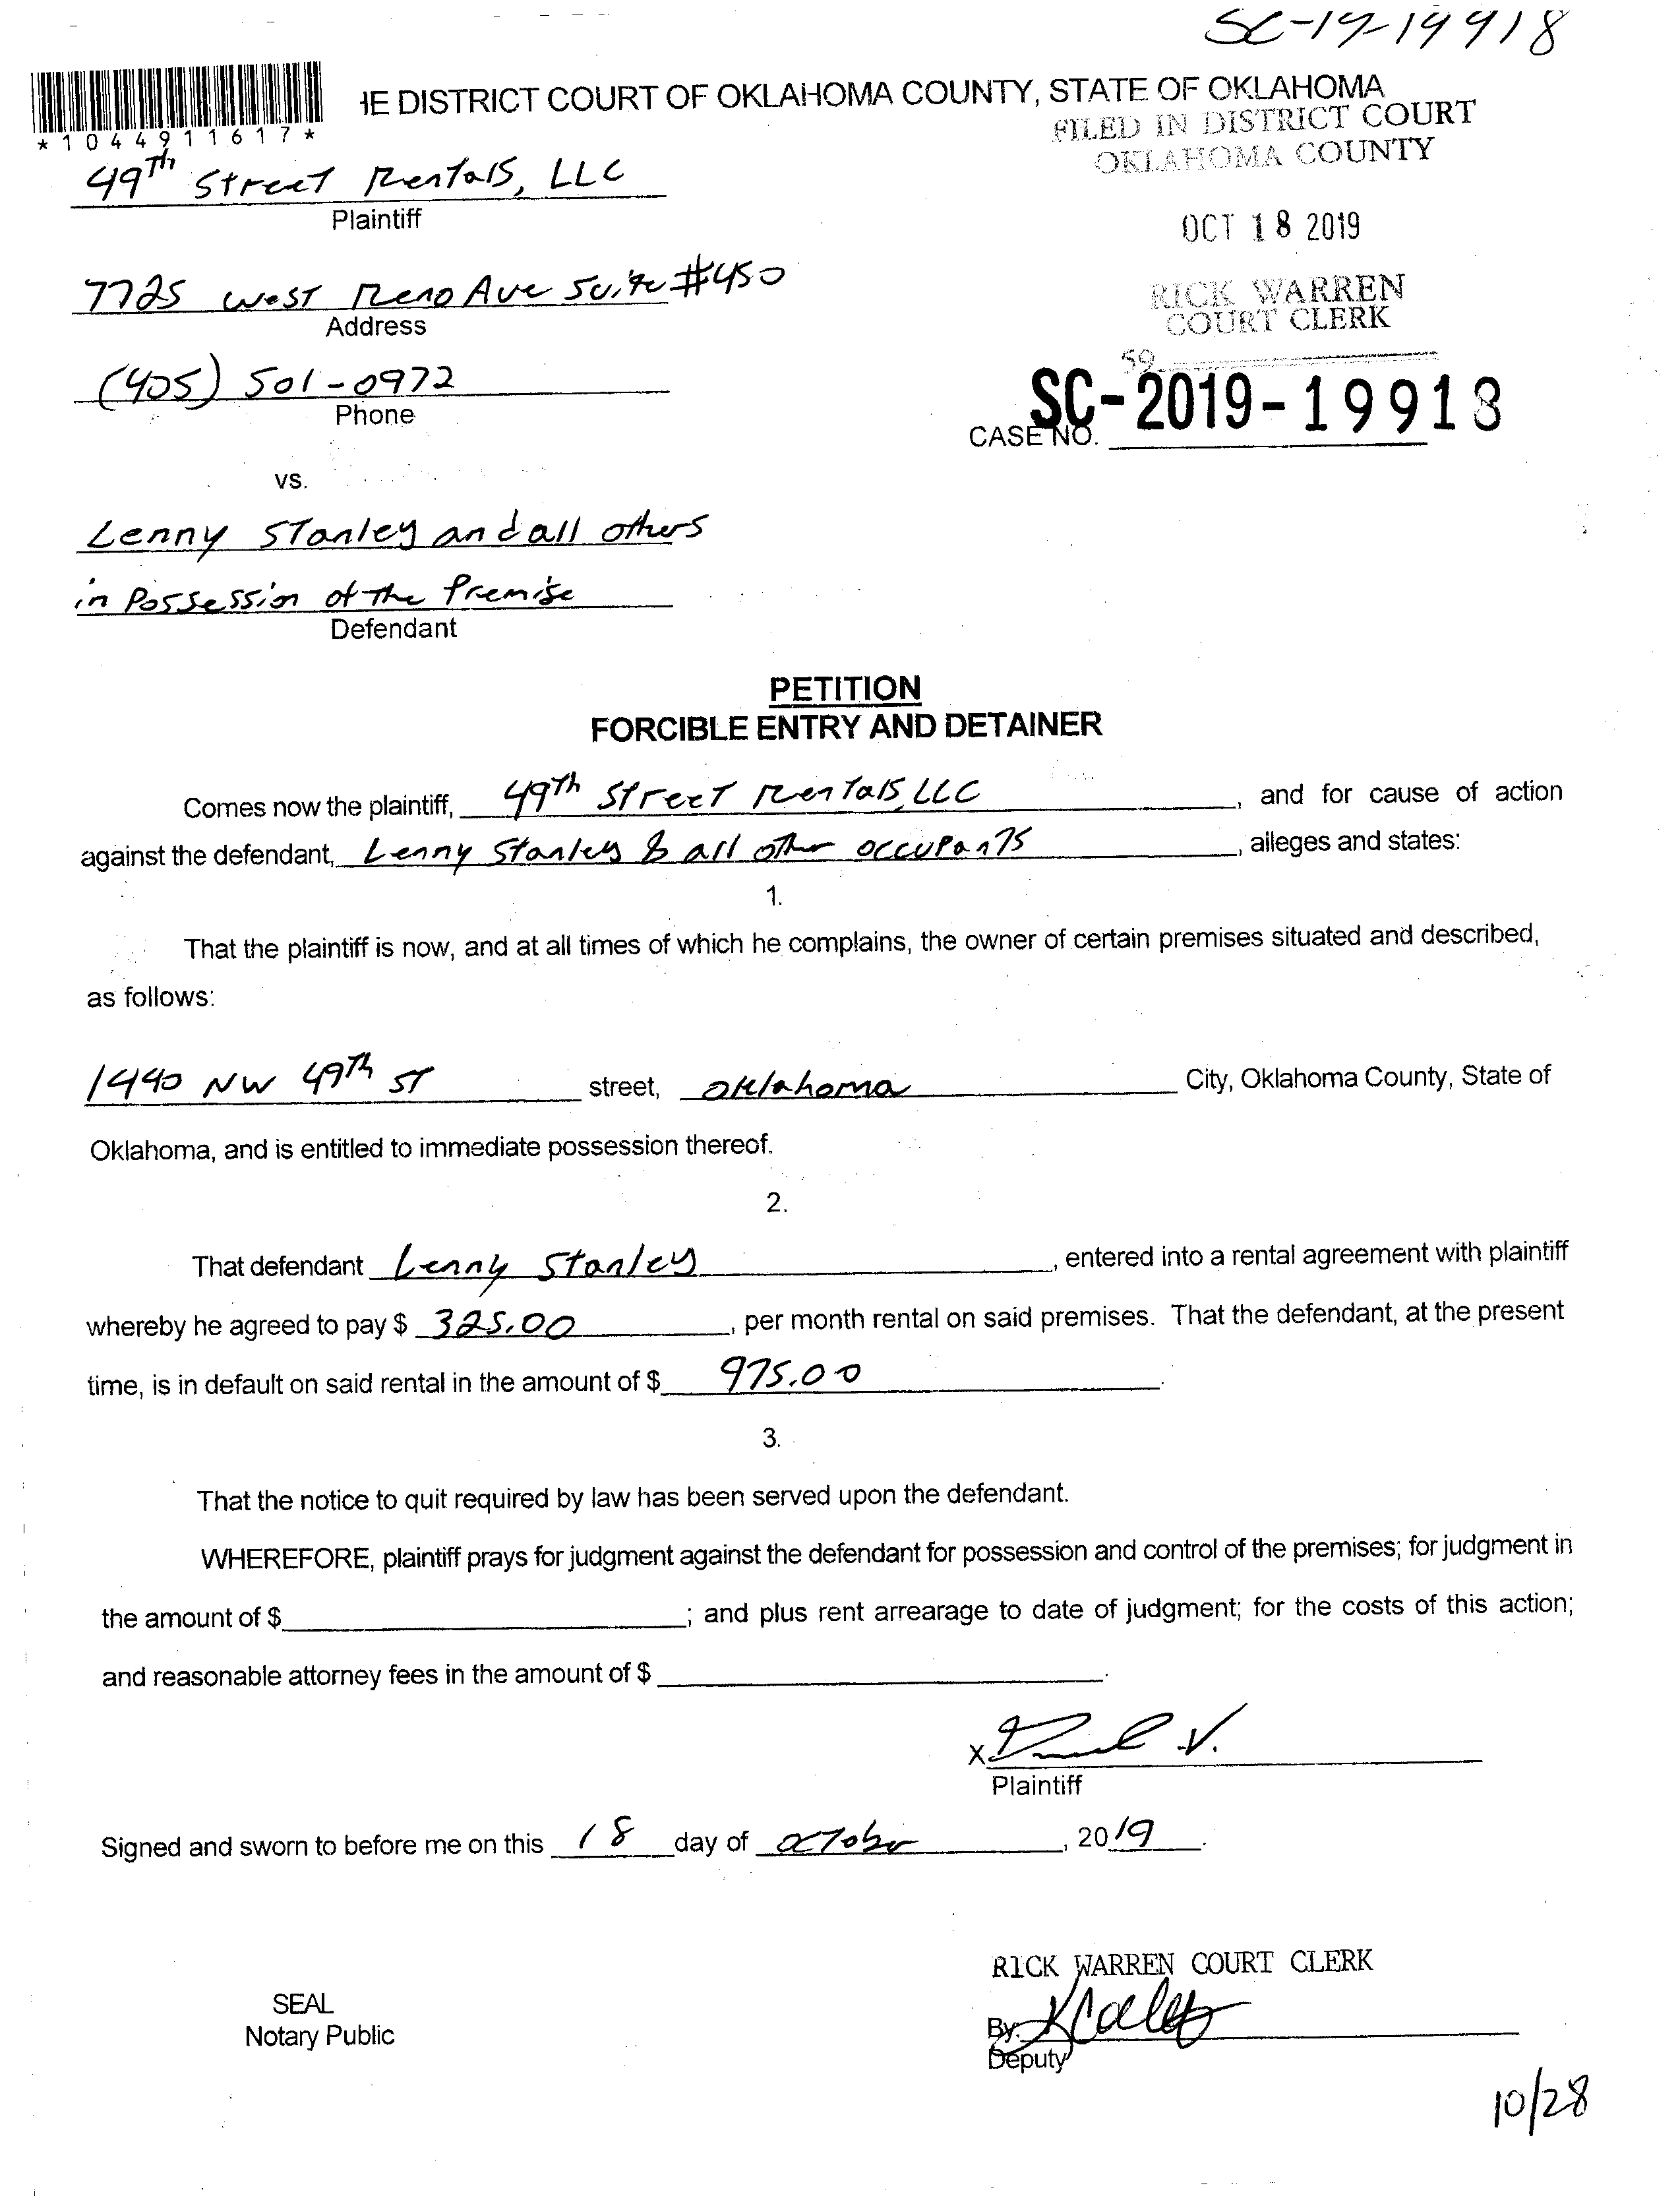 SC-19-19918
*1044911617*
IE DISTRICT COURT OF OKLAHOMA COUNTY, STATE OF OKLAHOMA
FILED IN DISTRICT COURT
OKLAHOMA COUNTY
49th Street Rentals, LLC
Plaintiff
OCT 18 2019
7725 West Reno Ave Suite #450
Address
RICK WARREN
COURT CLERK
(405) 501-0972
Phone
59
SC-2019-19918
CASE NO.
vs.
Lenny Stanley and all others
in Possession of the Premise
Defendant
PETITION
FORCIBLE ENTRY AND DETAINER
Comes now the plaintiff, 49th Street Rentals, LLC, and for cause of action
against the defendant, Lenny Stanley & all other occupants, alleges and states:
1.
That the plaintiff is now, and at all times of which he complains, the owner of certain premises situated and described,
as follows:
1440 NW 49th ST street, Oklahoma City, Oklahoma County, State of
Oklahoma, and is entitled to immediate possession thereof.
2.
That defendant Lenny Stanley, entered into a rental agreement with plaintiff
whereby he agreed to pay $ 325.00, per month rental on said premises. That the defendant, at the present
time, is in default on said rental in the amount of $ 975.00.
3.
That the notice to quit required by law has been served upon the defendant.
WHEREFORE, plaintiff prays for judgment against the defendant for possession and control of the premises; for judgment in
the amount of $ ; and plus rent arrearage to date of judgment; for the costs of this action;
and reasonable attorney fees in the amount of $ .
X
Plaintiff
Signed and sworn to before me on this 18 day of October, 2019.
RICK WARREN COURT CLERK
SEAL
Notary Public
By:
Deputy
10/28